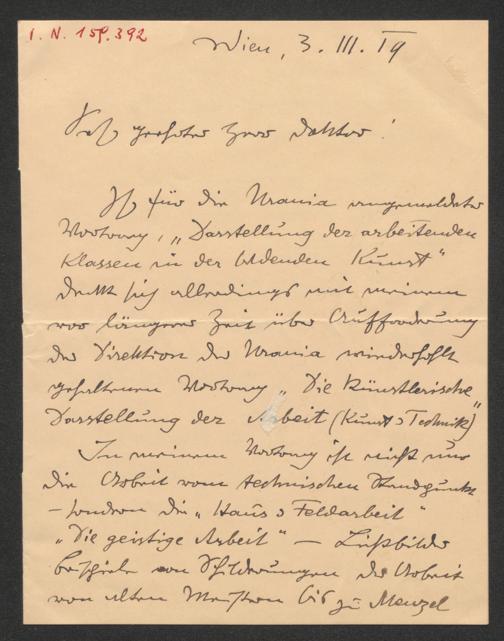 I. N. 158.392
Wien, 3. III. 19
Sehr geehrter Herr Doktor!
Ihr für die Urania angemeldeter
Vortrag, „Darstellung der arbeitenden
Klassen in der bildenden Kunst“
deckt sich allerdings mit meinem
vor längerer Zeit über Aufforderung
der Direktion der Urania wiederholt
gehaltenen Vortrag „Die künstlerische
Darstellung der Arbeit (Kunst u Technik)“
In meinem Vortrag ist nicht nur
die Arbeit vom technischen Standpunkt
– sondern die „Haus u Feldarbeit“
„Die geistige Arbeit“ – Lichtbilder
Beispiele von Schilderungen der Arbeit
von alten Meistern bis zu Menzel